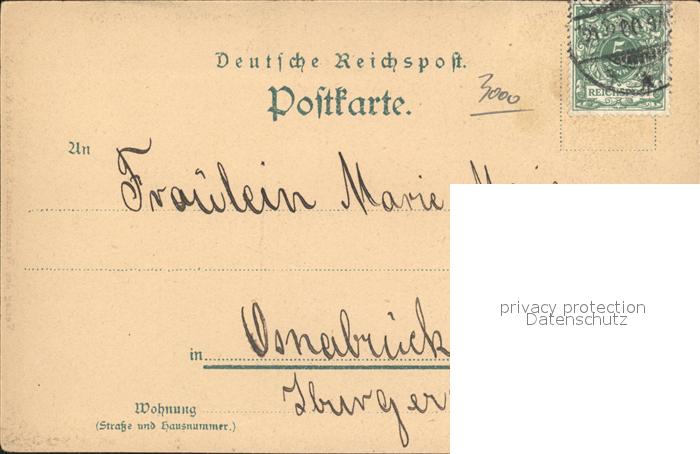 Deutsche Reichspost.
Postkarte.
3000
5
REICHSPOST
An
Fräulein Marie
privacy protection
Datenschutz
in Osnabrück
Iburger
Wohnung
(Straße und Hausnummer.)